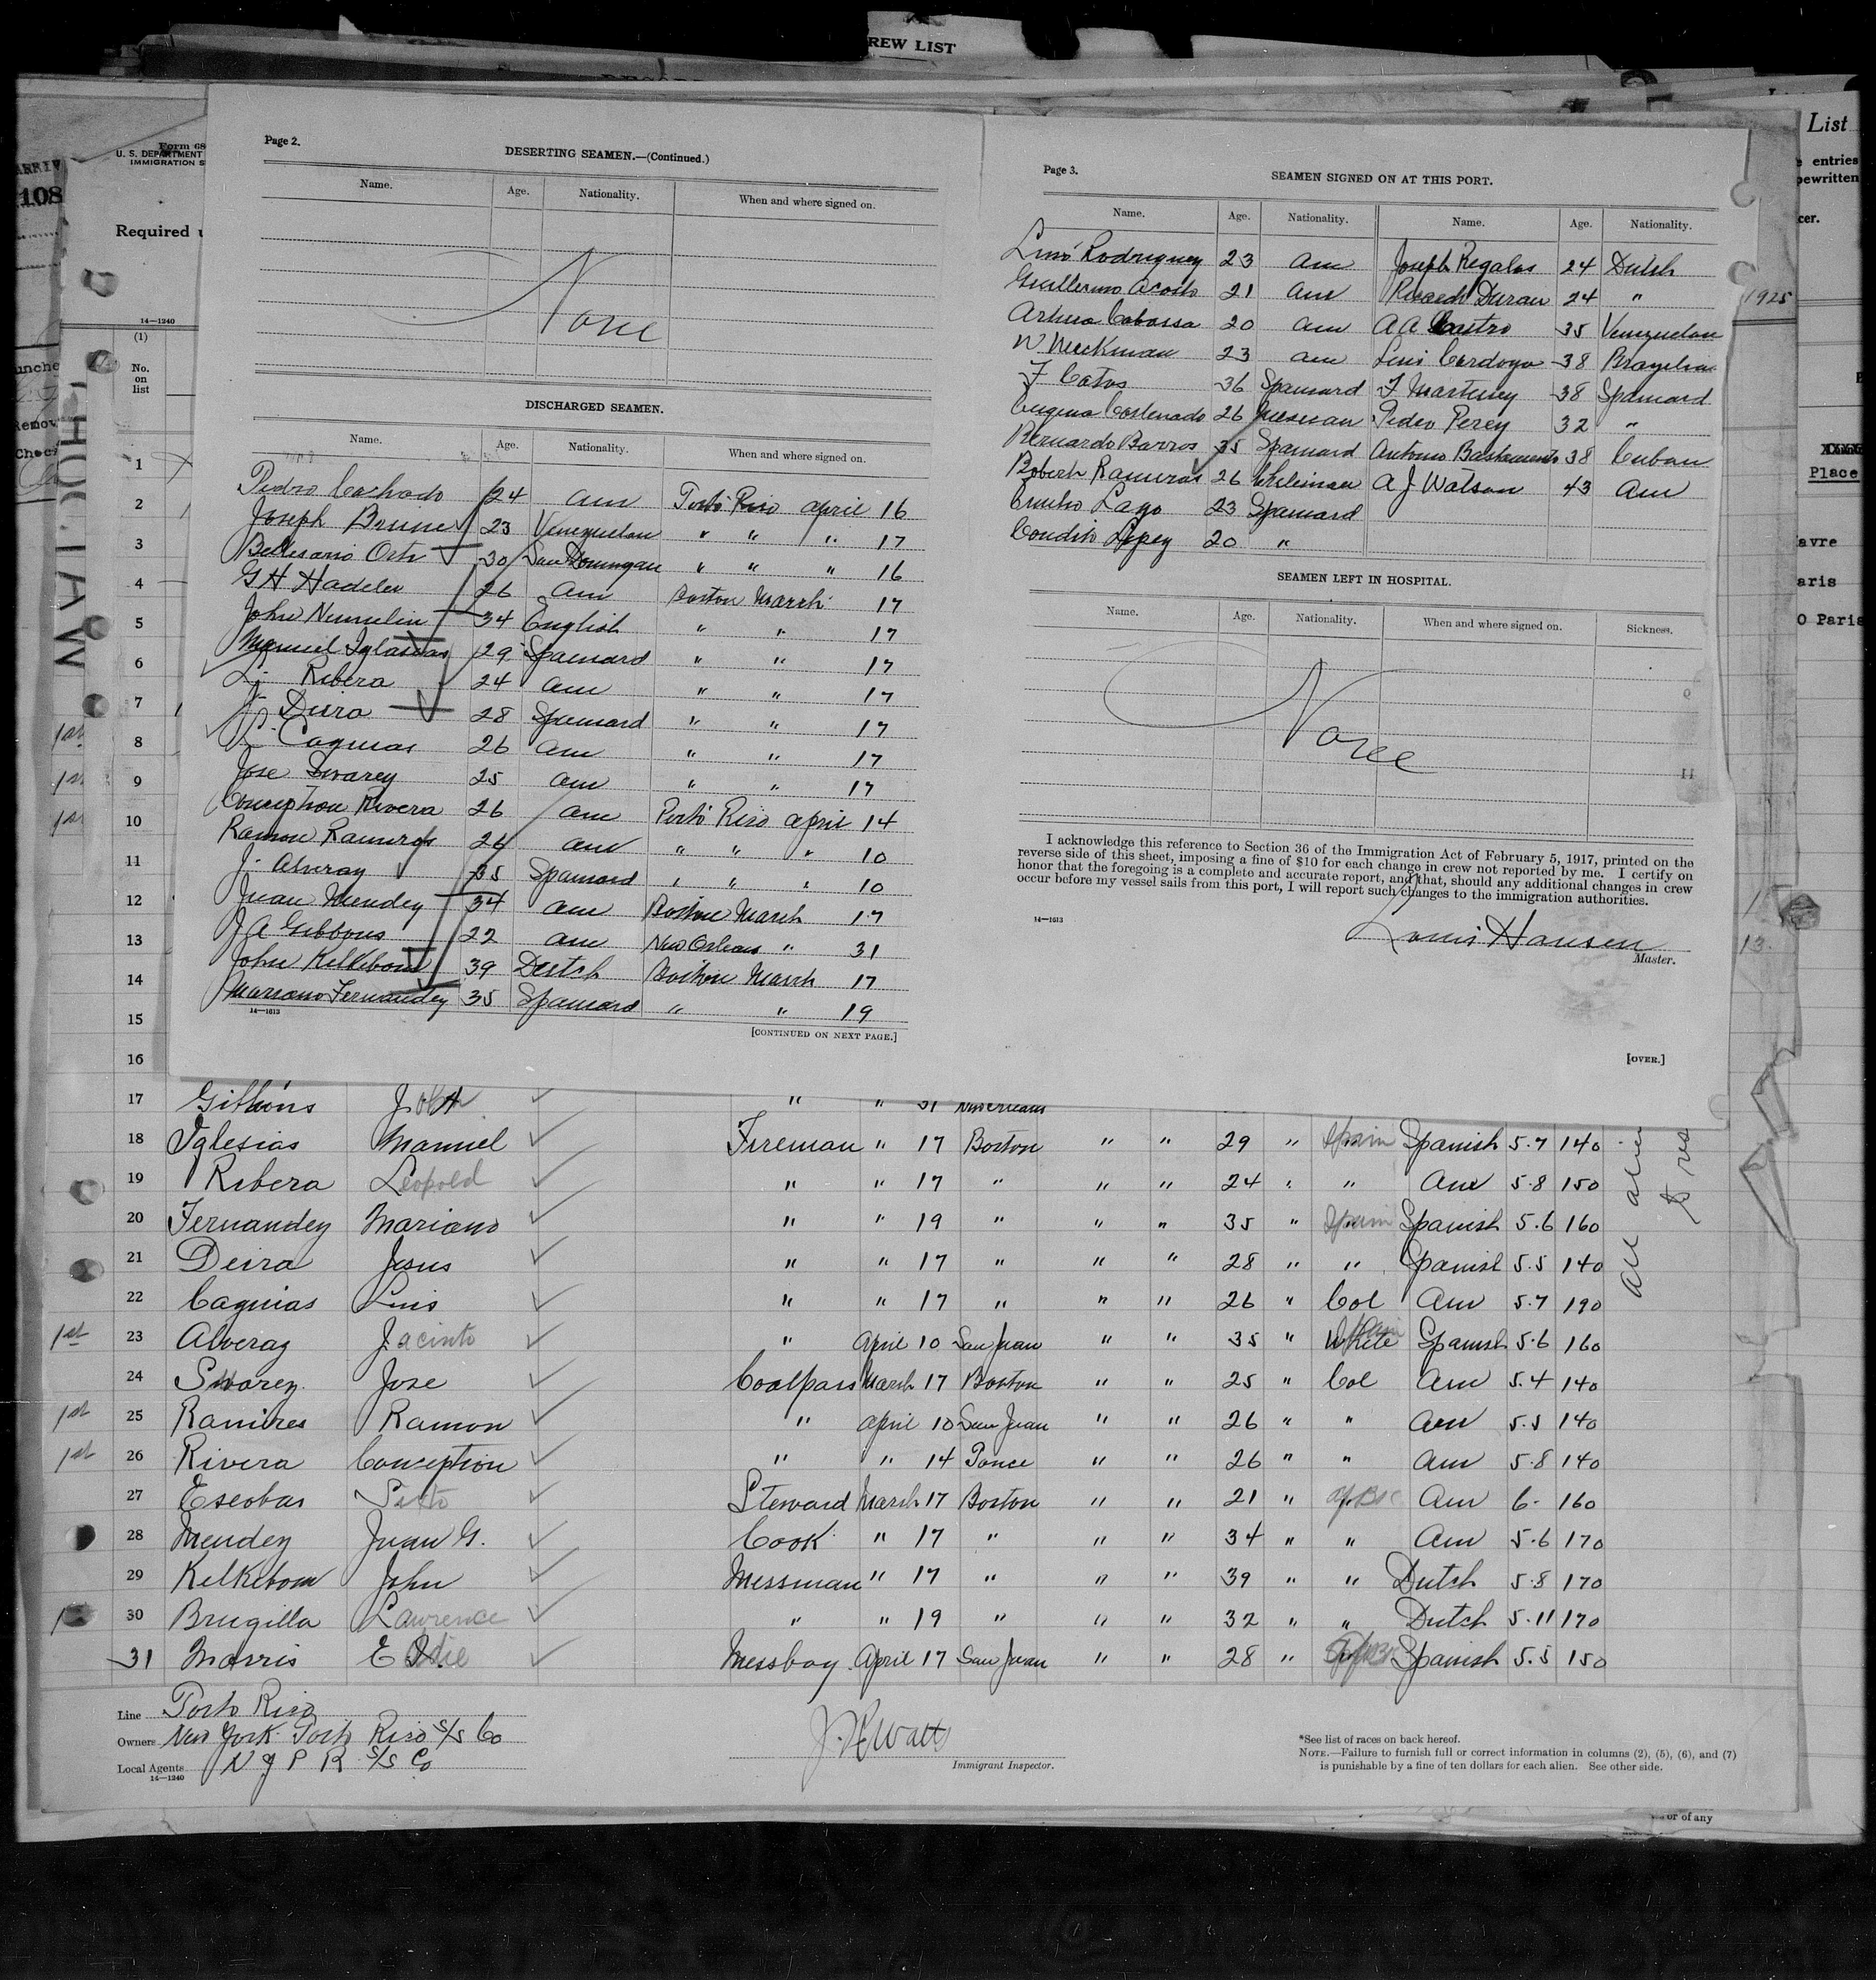 REW LIST
Form 68
U. S. DEPARTMENT
IMMIGRATION S
108
Required
14—1240
(1)
No.
on
list
Page 2.
DESERTING SEAMEN.—(Continued.)
Name. Age. Nationality. When and where signed on.
None
DISCHARGED SEAMEN.
Name. Age. Nationality. When and where signed on.
Pedro Cachado 24 Am Porto Rico April 16
Joseph Brunes 23 Venezuelan " " " 17
Bellesario Orti 30 San Domingan " " " 16
G H Hadeler 26 Am Boston March 17
John Nurmelin 34 English " " 17
Manuel Iglasias 29 Spaniard " " 17
L. Ribera 24 Am " " 17
J. Deira 28 Spaniard " " 17
L. Caguias 26 Am " " 17
Jose Swarez 25 Am " " 17
Conception Rivera 26 Am Porto Rico April 14
Ramon Ramiros 26 Am " " " 10
J. Alveraz 35 Spaniard " " " 10
Juan Mendez 34 Am Boston March 17
J A Gibbons 22 Am New Orleans " 31
John Kelkiboom 39 Dutch Boston March 17
Mariano Fernandez 35 Spaniard " " 19
14—1613
[CONTINUED ON NEXT PAGE.]
Page 3.
SEAMEN SIGNED ON AT THIS PORT.
Name. Age. Nationality. Name. Age. Nationality.
Luis Rodriguez 23 Am Joseph Regalas 24 Dutch
Guillermo Acosto 21 Am Duran 24 "
Arturo Cabassa 20 Am A A Castro 35 Venezuelan
W Neckman 23 Am Luis Cardoza 38 Brazilian
F Catos 36 Spaniard F Martinez 38 Spaniard
Eugenio 26 Mexican Pedro Perez 32 "
Bernardo Barros 35 Spaniard Antonio Bastamento 38 Cuban
Robert Ramiras 26 Chileman A J Watson 43 Am
Lago 23 Spaniard
Condito Lopez 20 "
SEAMEN LEFT IN HOSPITAL.
Name. Age. Nationality. When and where signed on. Sickness.
None
I acknowledge this reference to Section 36 of the Immigration Act of February 5, 1917, printed on the
reverse side of this sheet, imposing a fine of $10 for each change in crew not reported by me. I certify on
honor that the foregoing is a complete and accurate report, and that, should any additional changes in crew
occur before my vessel sails from this port, I will report such changes to the immigration authorities.
14—1613
Louis Hansen
Master.
[OVER.]
1925
List
entries
pewritten
cer.
Place
avre
aris
O Paris
1
2
3
4
5
6
7
8
9
10
11
12
13
14
15
16
17 Gibbons John A " " 31 New Orleans
18 Iglesias Manuel Fireman " 17 Boston " " 29 " Spain Spanish 5.7 140
19 Ribera Leopold " " 17 " " " 24 " " Am 5.8 150
20 Fernandez Mariano " " 19 " " " 35 " Spain Spanish 5.6 160
21 Deira Jesus " " 17 " " " 28 " " Spanish 5.5 140
22 Caguias Luis " " 17 " " " 26 " Col Am 5.7 190
1st 23 Alveraz Jacinto " April 10 San Juan " " 35 " White Spanish 5.6 160
24 Swarez Jose Coalpass March 17 Boston " " 25 " Col Am 5.4 140
1st 25 Ramires Ramon " April 10 San Juan " " 26 " " Am 5.5 140
1st 26 Rivera Conception " " 14 Ponce " " 26 " " Am 5.8 140
27 Escobar Sixto Steward March 17 Boston " " 21 " Am 6. 160
28 Mendez Juan G. Cook " 17 " " " 34 " " Am 5.6 170
29 Kelkiboom John Messman " 17 " " " 39 " " Dutch 5.8 170
30 Brugilla Lawrence " " 19 " " " 32 " " Dutch 5.11 170
31 Morris Eddie Messboy April 17 San Juan " " 28 " Spanish 5.5 150
Line Porto Rico
Owners New York Porto Rico S/S Co
Local Agents N Y P R S/S Co
14—1240
Immigrant Inspector.
*See list of races on back hereof.
NOTE.—Failure to furnish full or correct information in columns (2), (5), (6), and (7)
is punishable by a fine of ten dollars for each alien. See other side.
or of any